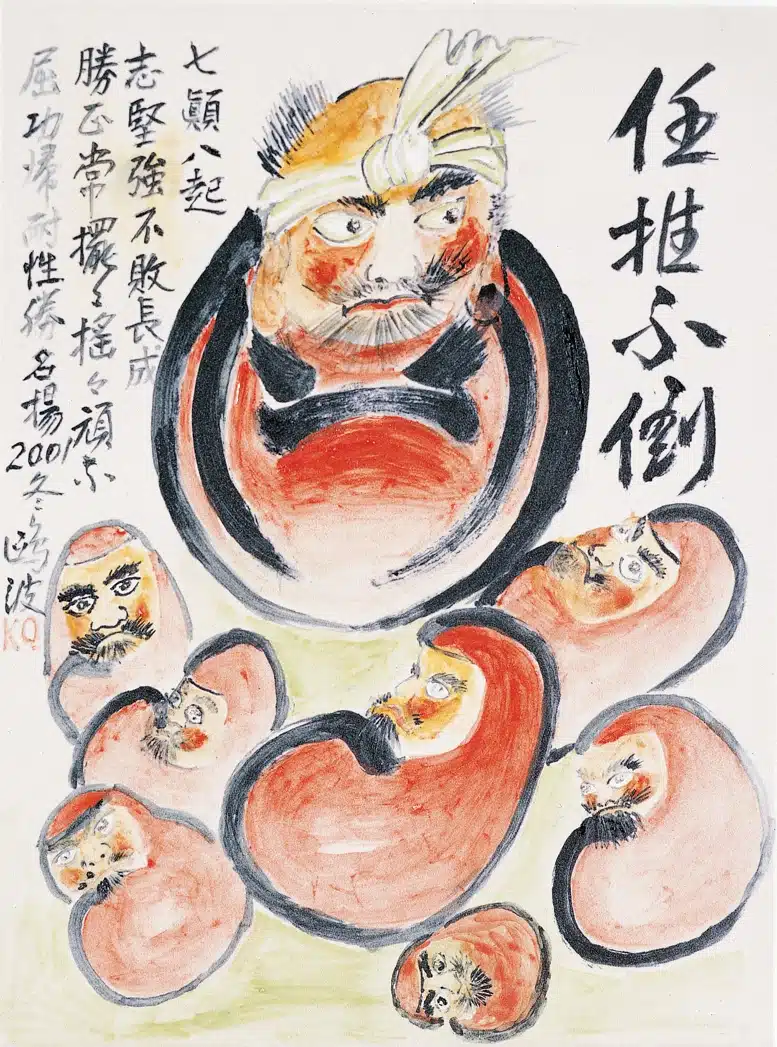 任推不倒
七顛八起
志堅強不敗長成
勝正常擺々搖々頑不
屈功帰耐性勝名揚
2001冬鴎波
KO